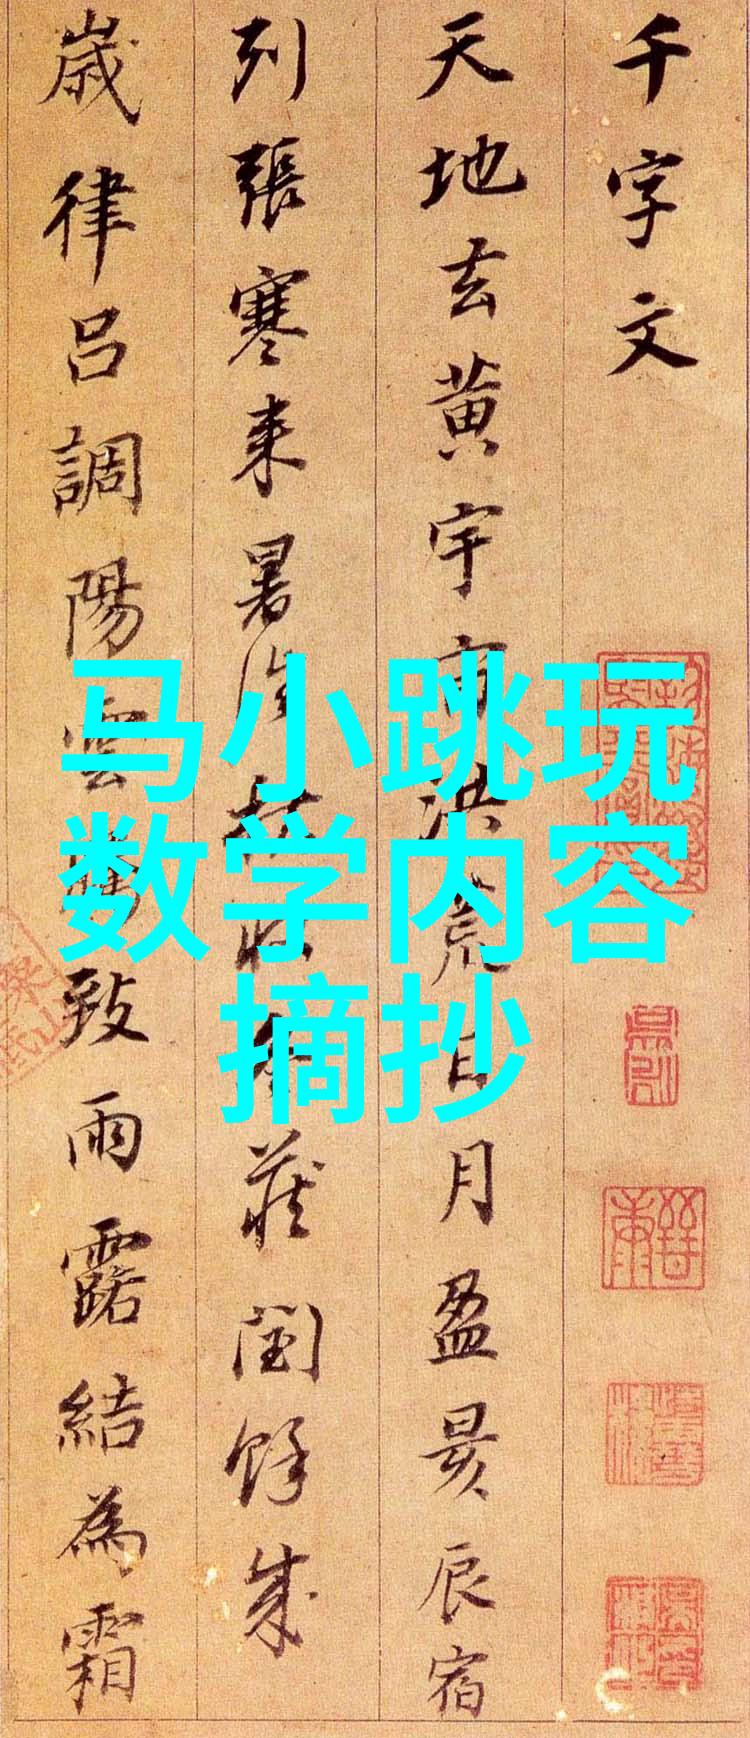 千字文
天地玄黄宇宙洪荒日月盈昃辰宿
列張寒来暑往秋收冬蔵閏餘成
歲律呂調陽雲騰致雨露結為霜
马小跳玩
数学内容
摘抄